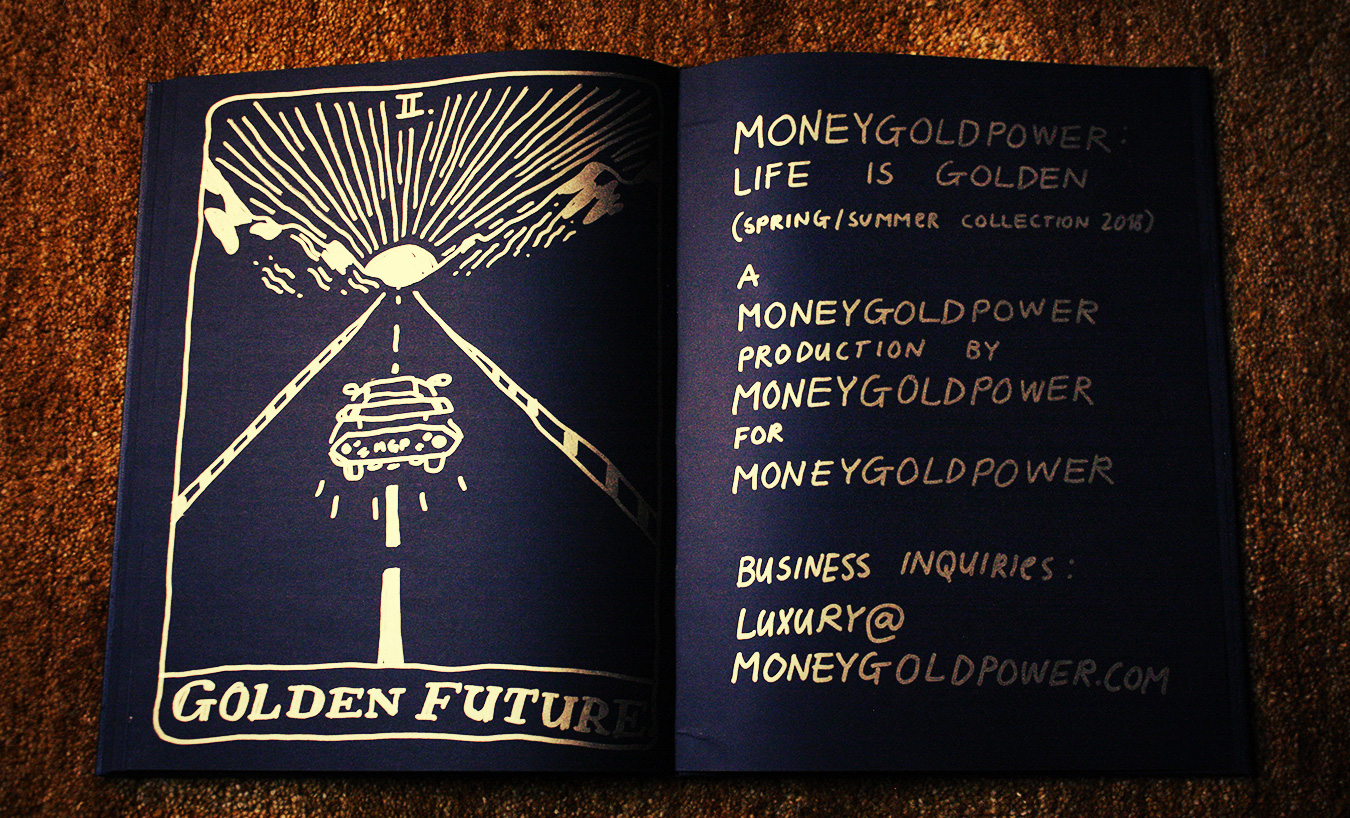 II.
MGP
GOLDEN FUTURE
MONEYGOLDPOWER:
LIFE IS GOLDEN
(SPRING/SUMMER COLLECTION 2018)
A
MONEYGOLDPOWER
PRODUCTION BY
MONEYGOLDPOWER
FOR
MONEYGOLDPOWER
BUSINESS INQUIRIES:
LUXURY@
MONEYGOLDPOWER.COM